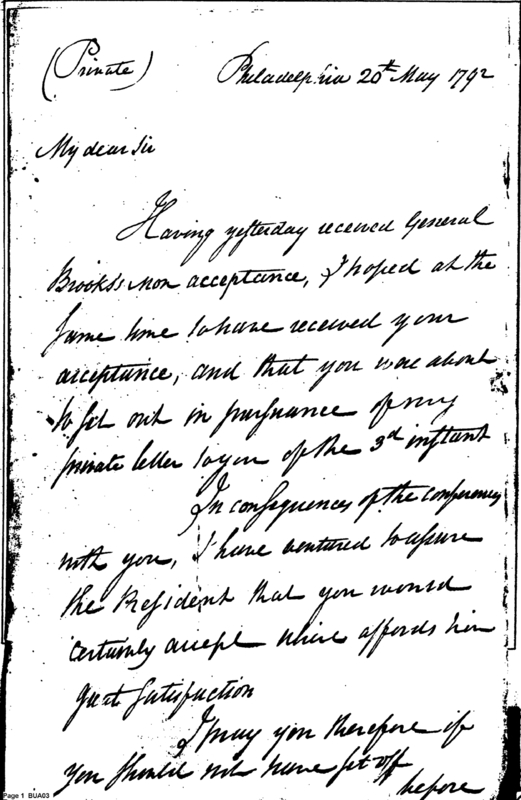 (Private)
Philadelphia 20th May 1792
My dear Sir
Having yesterday received General
Brooks's non acceptance, I hoped at the
same time to have received your
acceptance, and that you were about
to set out in pursuance of my
private letter to you of the 3d instant
In consequence of the conferences
with you, I have ventured to assure
the President that you would
certainly accept which affords him
great satisfaction
I pray you therefore if
you should not have set off
before
Page 1 BUA03